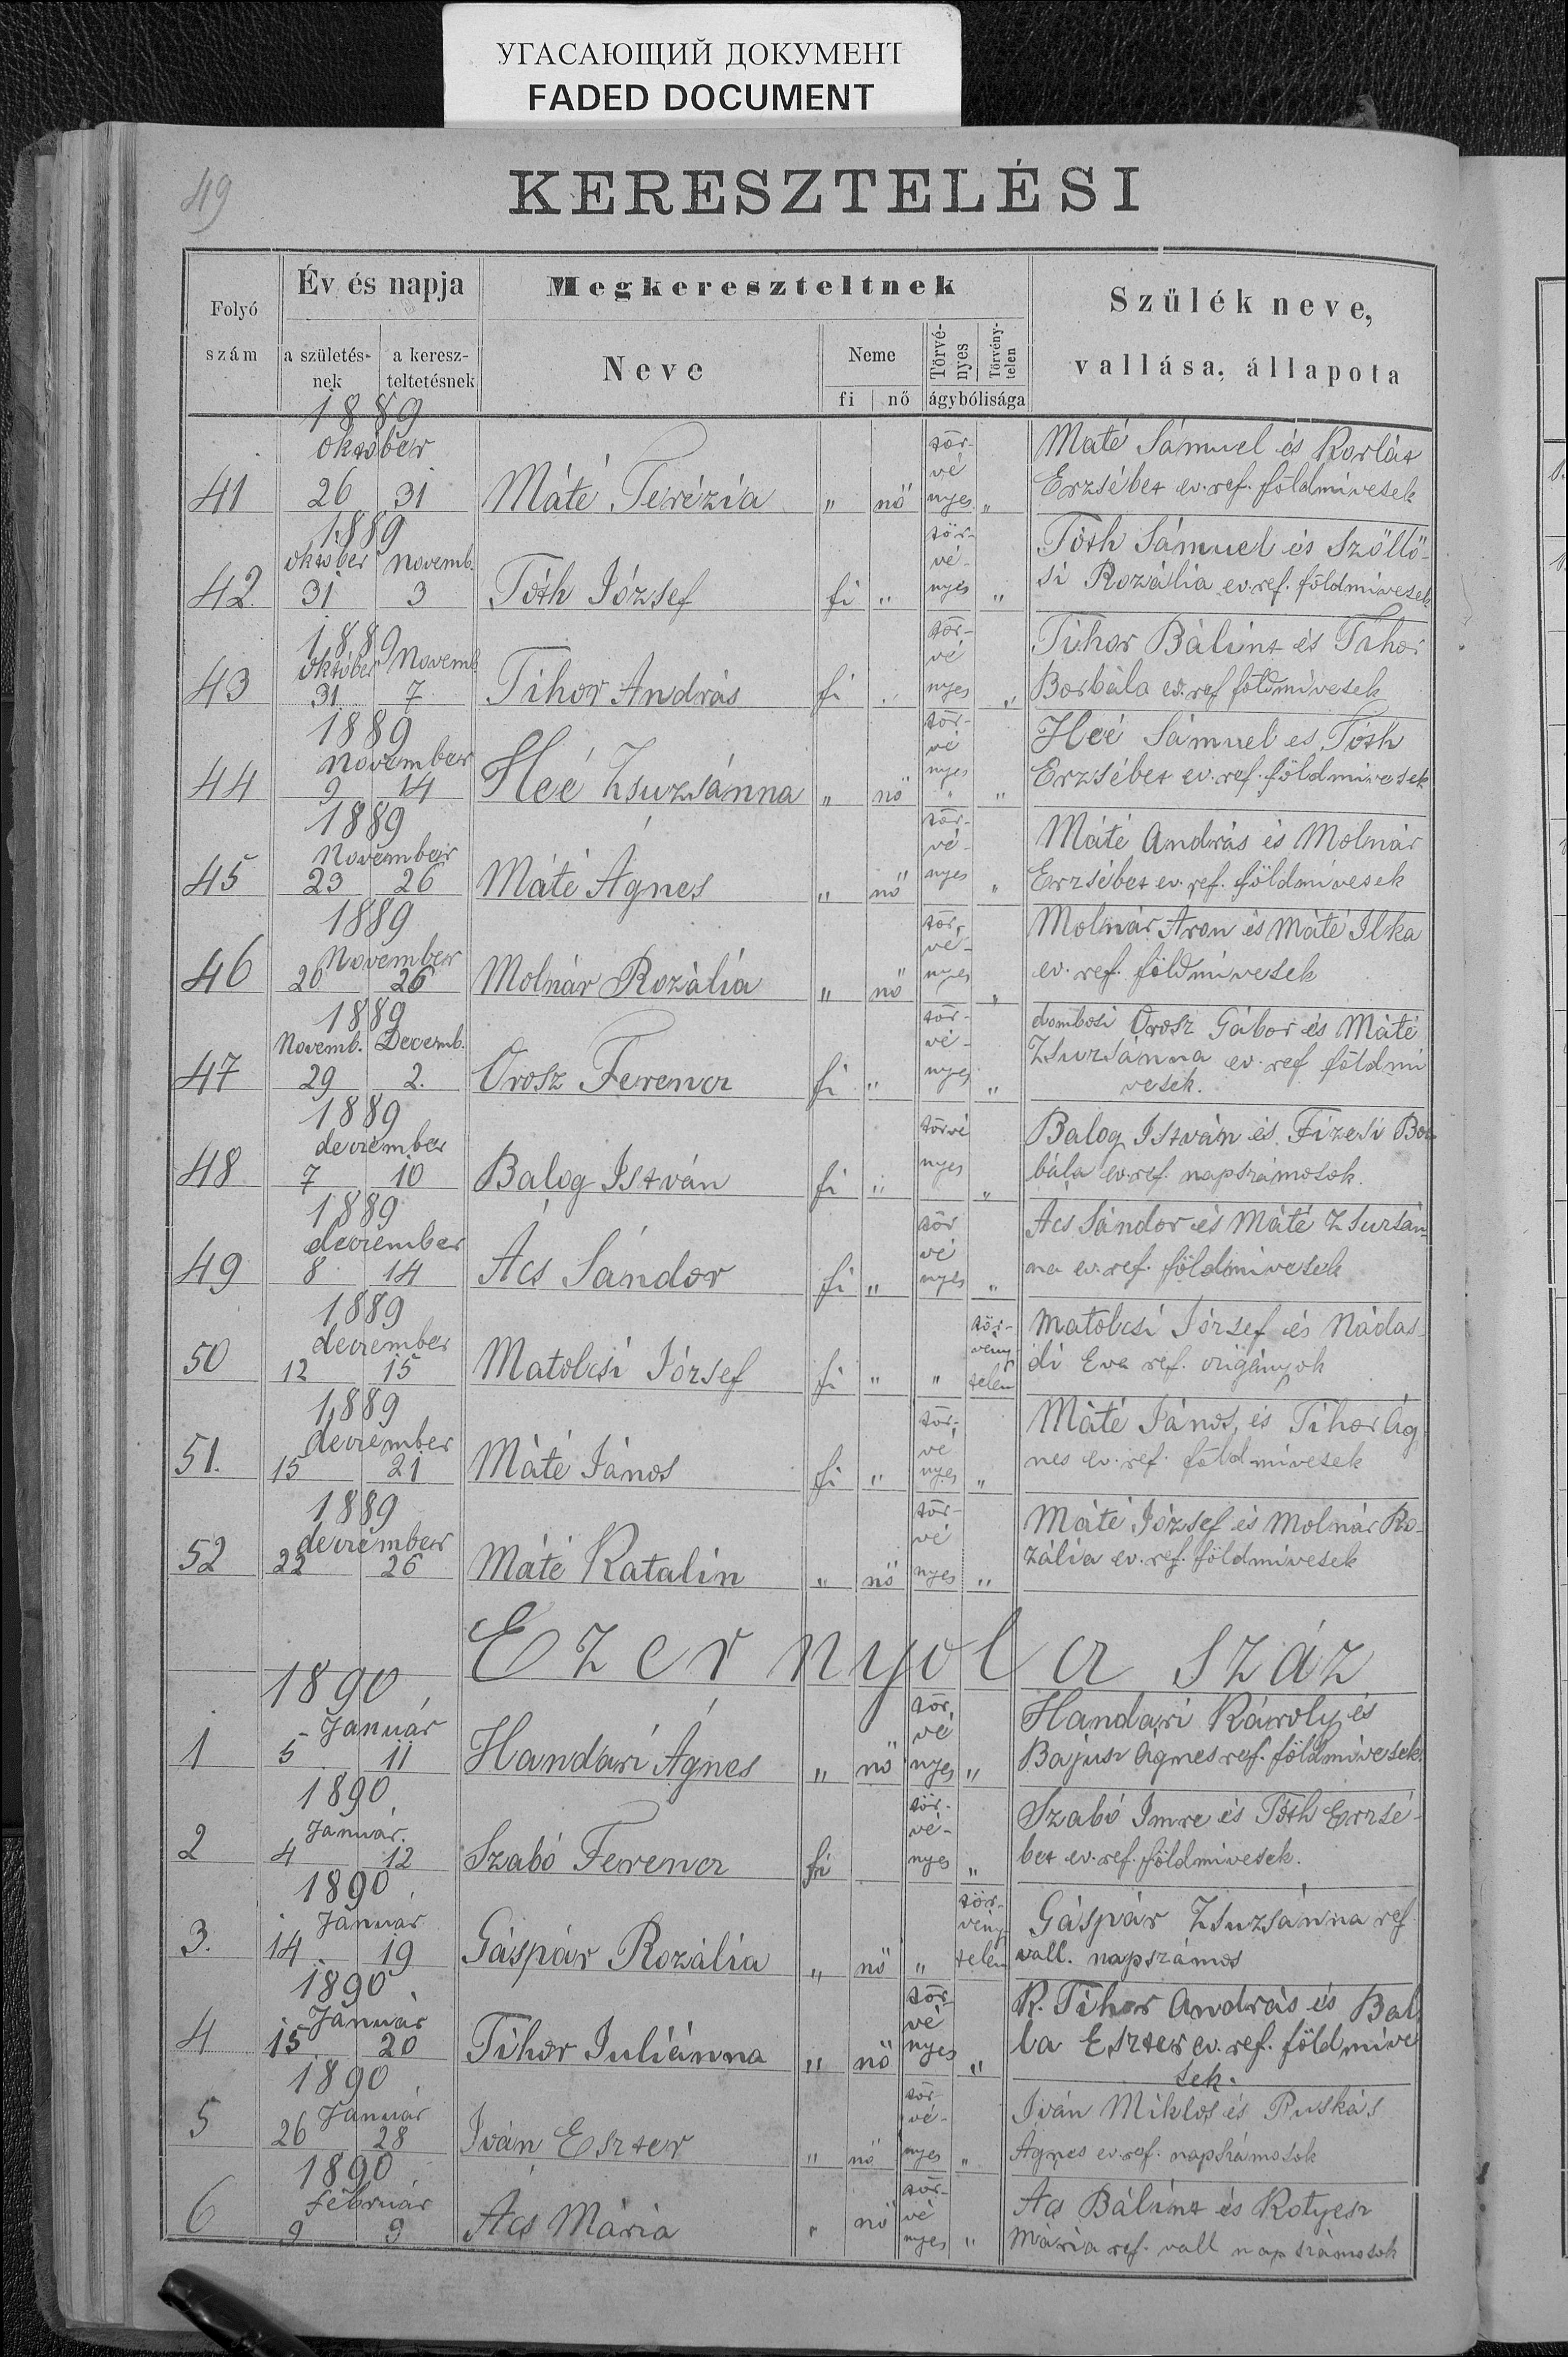 УГАСАЮЩИЙ ДОКУМЕНТ
FADED DOCUMENT
49
KERESZTELÉSI
Folyó szám
Év és napja
a születés-nek
a keresz-teltetésnek
Megkereszteltnek
Neve
Neme
fi nő
Törvé-nyes
Törvény-telen
ágybólisága
Szülék neve,
vallása, állapota
1889
október
41 26 31 Máté Terézia " nő tör-vé nyes "
Maté Sámuel és Korlát
Erzsébet ev. ref. földmivesek
1889
október novemb.
42. 31 3 Tóth József fi " tör-vé-nyes "
Tóth Sámuel és Szöllö-
si Rozália ev. ref. földmivesek
1889
október Novemb
43 31 7 Tihor András fi " tör-vé nyes "
Tihor Bálint és Tihor
Borbála ev. ref földmivesek
1889
november
44 9 14 Heé Zsuzsánna " nő tör-vé nyes "
Heé Sámuel es Tóth
Erzsébet ev. ref. földmivesek
1889
November
45 23 26 Máté Ágnes " nő tör-vé-nyes "
Máté András és Molnár
Erzsébet ev. ref. földmivesek
1889
November
46 20 26 Molnár Rozália " nő tör-vé-nyes "
Molnár Aron és Máté Ilka
ev. ref. földmivesek
1889
Novemb. Decemb.
47 29 2. Orosz Ferencz fi " tör-vé-nyes "
dombosi Orosz Gábor és Máté
Zsuzsánna ev. ref földmi
vesek.
1889
deczember
48 7 10 Balog István fi " törvé nyes "
Balog István és Fizesi Bor
bála ev. ref. napszámosok.
1889
deczember
49 8 14 Ács Sándor fi " tör vé nyes "
Acs Sándor és Máté Zsuzsán-
na ev. ref. földmivesek
1889
deczember
50 12 15 Matolcsi József fi " " tör-vény telen
Matolcsi József és Nádas-
di Eva ref. czigányok
1889
deczember
51. 15 21 Máté János fi " tör-vé nyes "
Máté János, és Tihor Ág
nes ev. ref. földmivesek
1889
deczember
52 22 26 Máté Katalin " nő tör-vé nyes "
Máté József és Molnár Ro-
zália ev. ref. földmivesek
Ezer nyolcz száz
1890
Január
1 5 11 Handari Ágnes " nő tör vé nyes "
Handari Károly és
Bajusz Ágnes ref. földmivesek.
1890
Január.
2 4 12 Szabó Ferencz fi tör-vé-nyes "
Szabó Imre és Tóth Erzsé-
bet ev. ref. földmivesek.
1890
Január
3. 14 19 Gáspár Rozália " nő " tör-vény telen
Gáspár Zsuzsánna ref.
vall. napszámos
1890
Január
4 15 20 Tihor Juliánna " nő tör vé nyes "
K. Tihor András és Bal
la Eszter ev. ref. földmive
sek.
1890
Január
5 26 28 Iván Eszter " nő tör-vé-nyes "
Iván Miklos és Puskás
Agnes ev. ref. napszámosok
1890
február
6 9 9 Ács Mária " nő tör-vé nyes "
Ács Bálint és Kotyesz
Mária ref. vall napszámosok